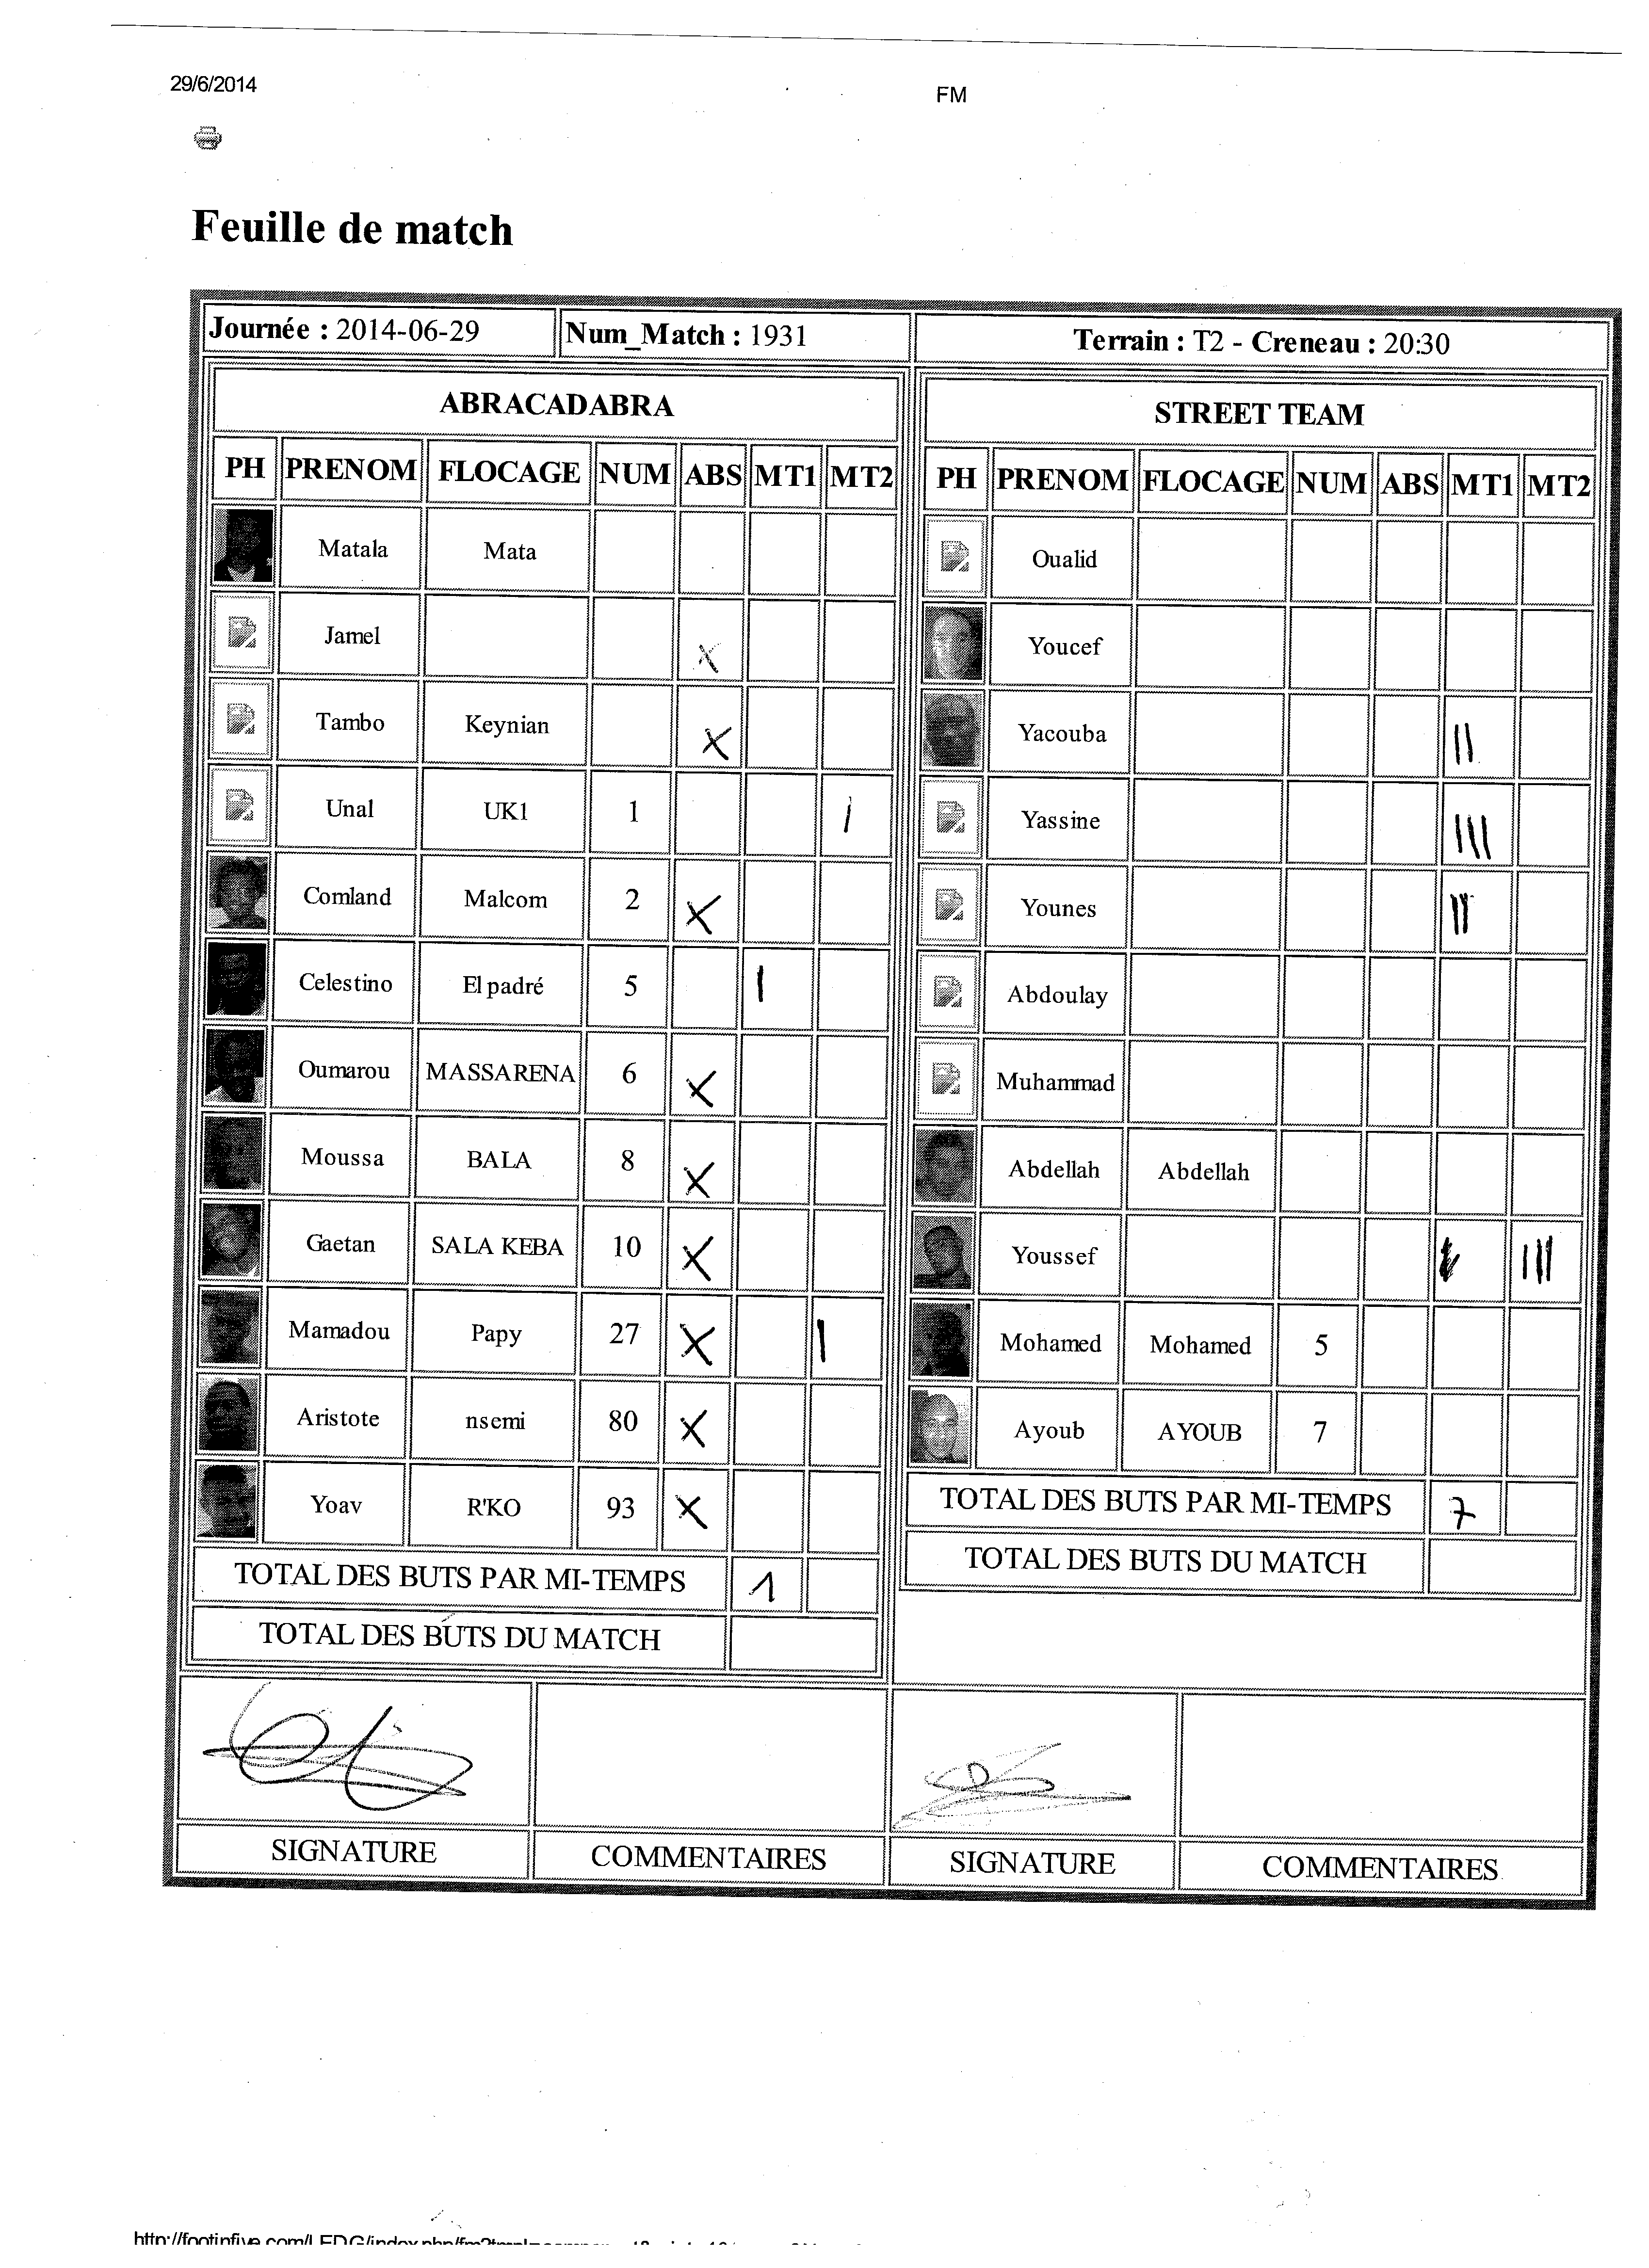 29/6/2014
FM
Feuille de match
Journée : 2014-06-29 Num_Match : 1931 Terrain : T2 - Creneau : 20:30
ABRACADABRA
PH PRENOM FLOCAGE NUM ABS MT1 MT2
Matala Mata
Jamel X
Tambo Keynian X
Unal UK1 1 I
Comland Malcom 2 X
Celestino El padré 5 I
Oumarou MASSARENA 6 X
Moussa BALA 8 X
Gaetan SALA KEBA 10 X
Mamadou Papy 27 X I
Aristote nsemi 80 X
Yoav R'KO 93 X
TOTAL DES BUTS PAR MI-TEMPS 1
TOTAL DES BUTS DU MATCH
STREET TEAM
PH PRENOM FLOCAGE NUM ABS MT1 MT2
Oualid
Youcef
Yacouba II
Yassine III
Younes II
Abdoulay
Muhammad
Abdellah Abdellah
Youssef III
Mohamed Mohamed 5
Ayoub AYOUB 7
TOTAL DES BUTS PAR MI-TEMPS 7
TOTAL DES BUTS DU MATCH
SIGNATURE COMMENTAIRES SIGNATURE COMMENTAIRES